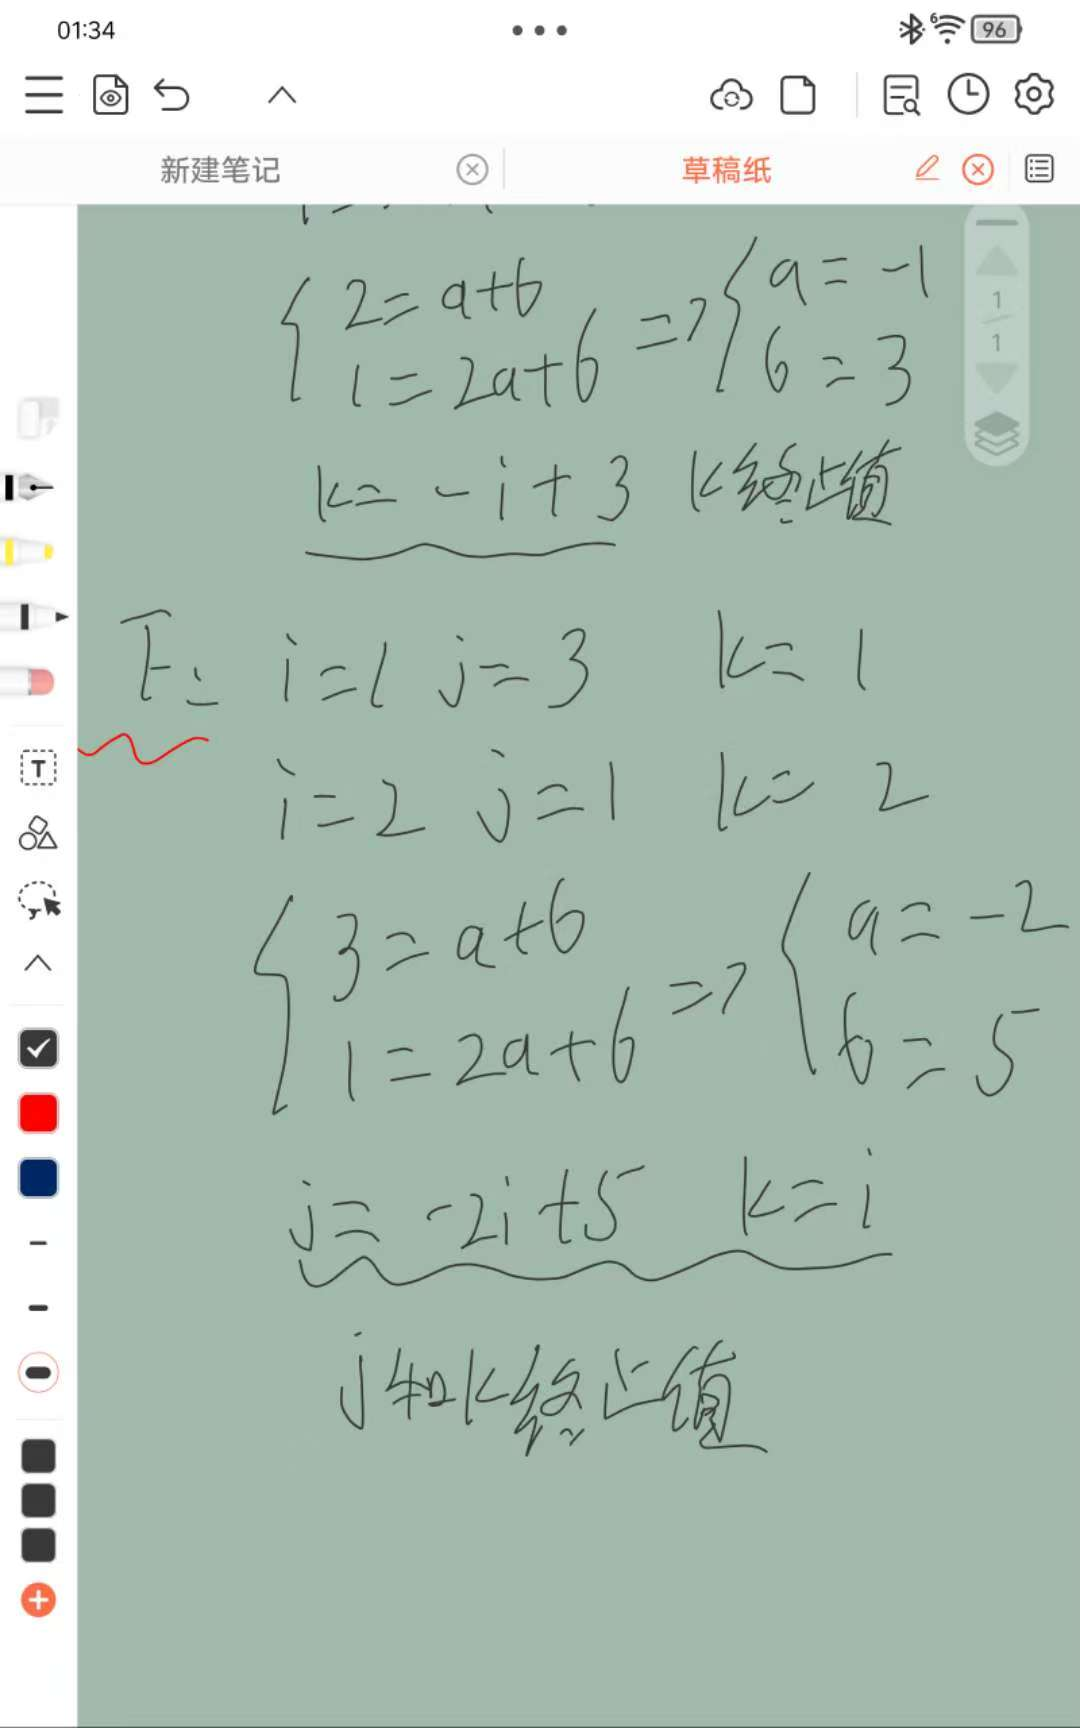 01:34
6
96
新建笔记
草稿纸
2=a+b
1=2a+b
=>
a=-1
b=3
1
1
k=-i+3 k终止值
下: i=1 j=3 k=1
i=2 j=1 k=2
3=a+b
1=2a+b
=>
a=-2
b=5
j=-2i+5 k=i
j和k终止值
T